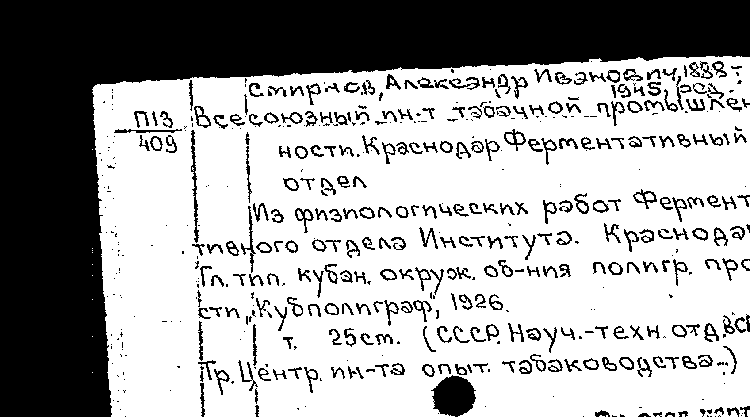 Смирнов, Александр Иванович, 1888-
1945, ред.
П13
409
Всесоюзный ин-т табачной промышлен
ности. Краснодар. Ферментативный
отдел
Из физиологических работ Фермент
тивного отдела Института. Краснода
Гл. тип. кубан. окруж. об-ния полигр. про
сти „Кубполиграф", 1926.
т. 25 см. (СССР. Науч.-техн. отд. ВС
Тр. Центр. ин-та опыт. табаководства...)